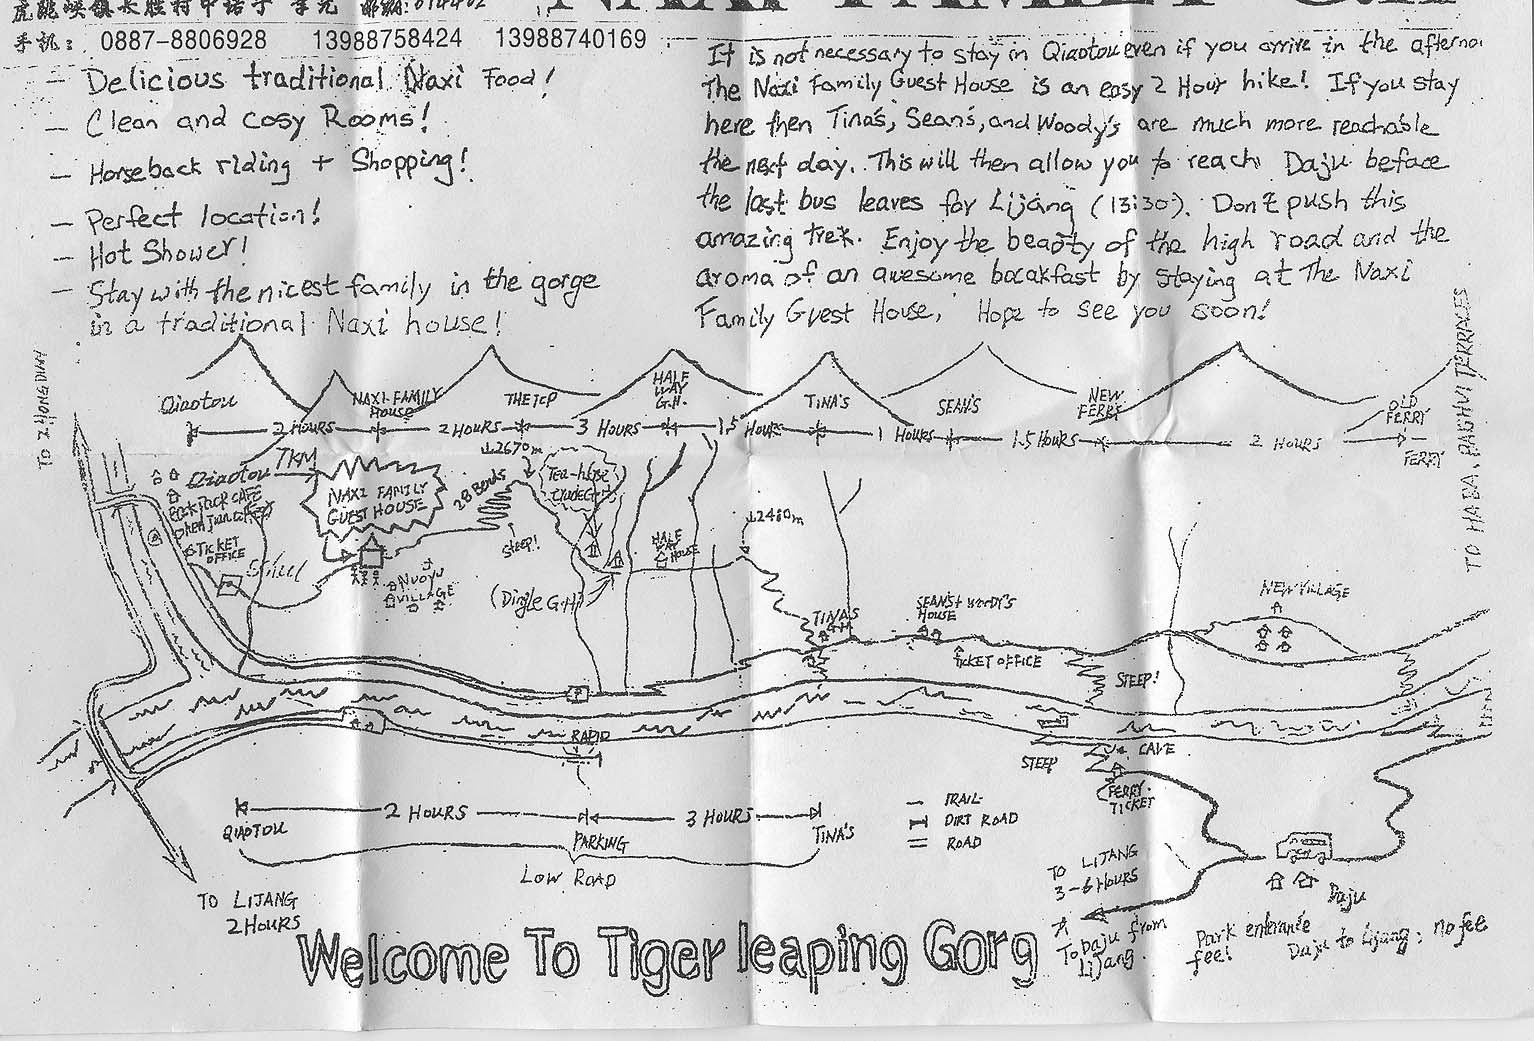 虎跳峡镇长胜村中诺予 李元 邮编:674402
手机: 0887-8806928 13988758424 13988740169
- Delicious traditional Naxi Food!
- Clean and cosy Rooms!
- Horseback riding + Shopping!
- Perfect location!
- Hot Shower!
- Stay with the nicest family in the gorge
in a traditional Naxi house!
It is not necessary to stay in Qiaotou even if you arrive in the afternoo
The Naxi Family Guest House is an easy 2 Hour hike! If you stay
here then Tina's, Sean's, and Woody's are much more reachable
the next day. This will then allow you to reach Daju beface
the last bus leaves for Lijang (13:30). Don't push this
amazing trek. Enjoy the beaoty of the high road and the
aroma of an awesome bocakfast by staying at The Naxi
Family Guest House, Hope to see you soon!
TO ZHONGDIAN
Qiaotou
NAXI FAMILY
House
THE TOP
HALF
WAY
G.H.
TINA'S
SEAN'S
NEW
FERRY
OLD
FERRY
2 HOURS
2 HOURS
3 HOURS
1.5 HOURS
1 HOURS
1.5 HOURS
2 HOURS
FERRY
TO HABA, BAISHUI TERRACES
Qiaotou
7KM
NAXI FAMILY
GUEST HOUSE
28 Bends
2670m
Tea-house
STEEP!
(Dingle G.H)
HALF
WAY
HOUSE
TICKET
OFFICE
VILLAGE
TINA'S
G.H
SEAN'S + WOODY'S
HOUSE
TICKET OFFICE
STEEP!
NEW VILLAGE
P
RAPID
STEEP
CAVE
FERRY
TICKET
QIAOTOU
2 HOURS
PARKING
3 HOURS
TINA'S
LOW ROAD
TRAIL
DIRT ROAD
ROAD
TO LIJANG
2 HOURS
TO LIJANG
3-6 HOURS
Daju
To Daju from
Lijang.
Park entrance
fee!
Daju to Lijang: no fee
Welcome To Tiger leaping Gorg